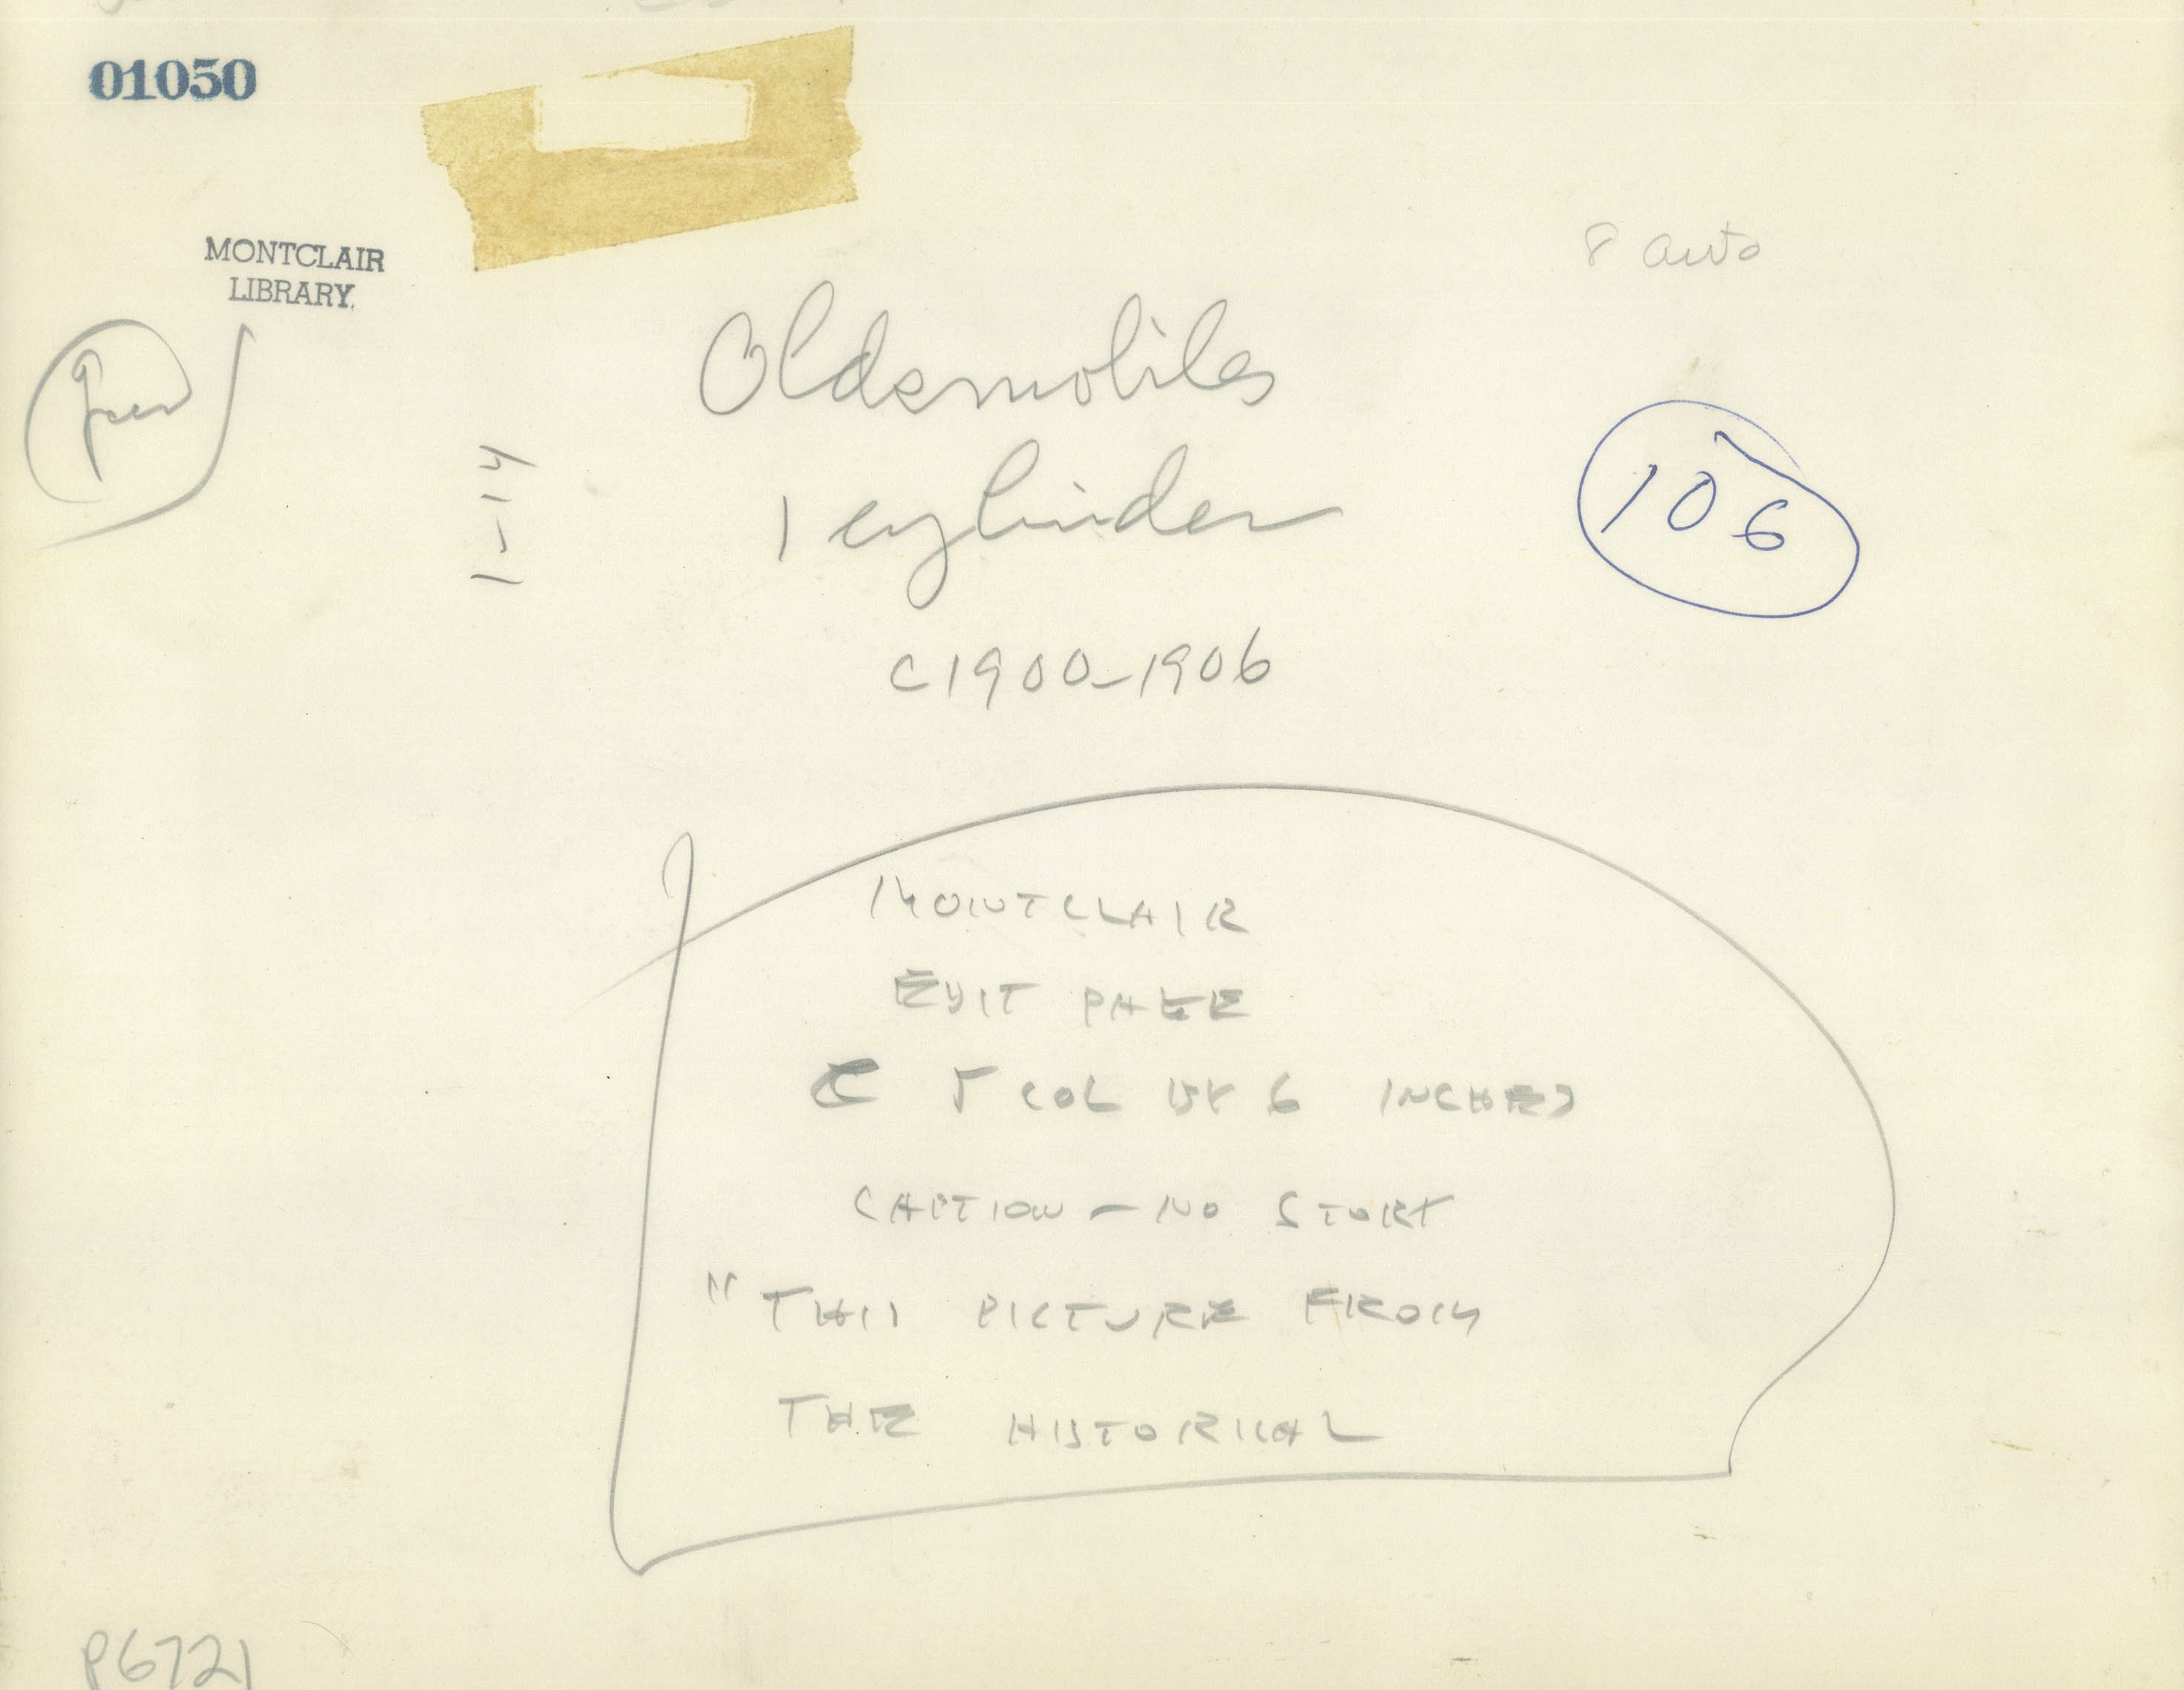 01050
MONTCLAIR
LIBRARY.
8 auto
Oldsmobiles
1 cylinder
1-14
106
C1900-1906
MONTCLAIR
EDIT PAGE
5 COL BY 6 INCHES
CAPTION - NO STORY
" THIS PICTURE FROM
THE HISTORICAL
P6721